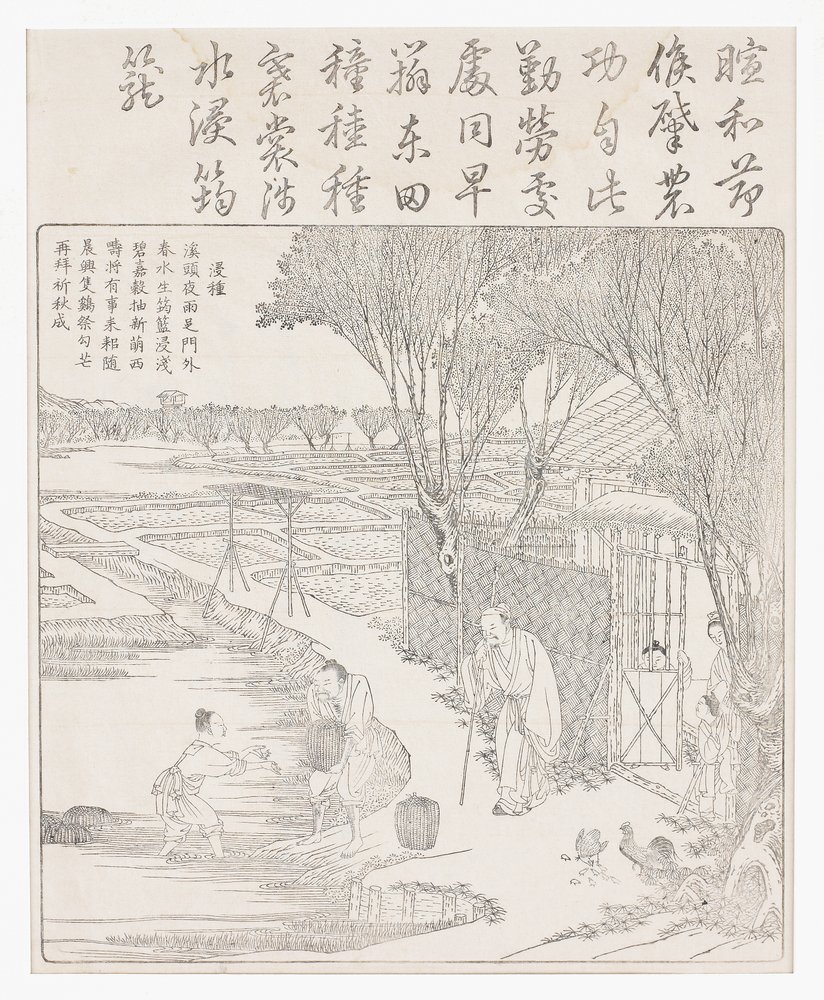 暄和節
候肇農
功自此
勤勞處
處同早
辦東田
穜稑種
褰裳涉
水浸筠
籠
浸種
溪頭夜雨足門外
春水生筠籃浸淺
碧嘉穀抽新萌西
疇將有事耒耜隨
晨興隻鷄祭勾芒
再拜祈秋成